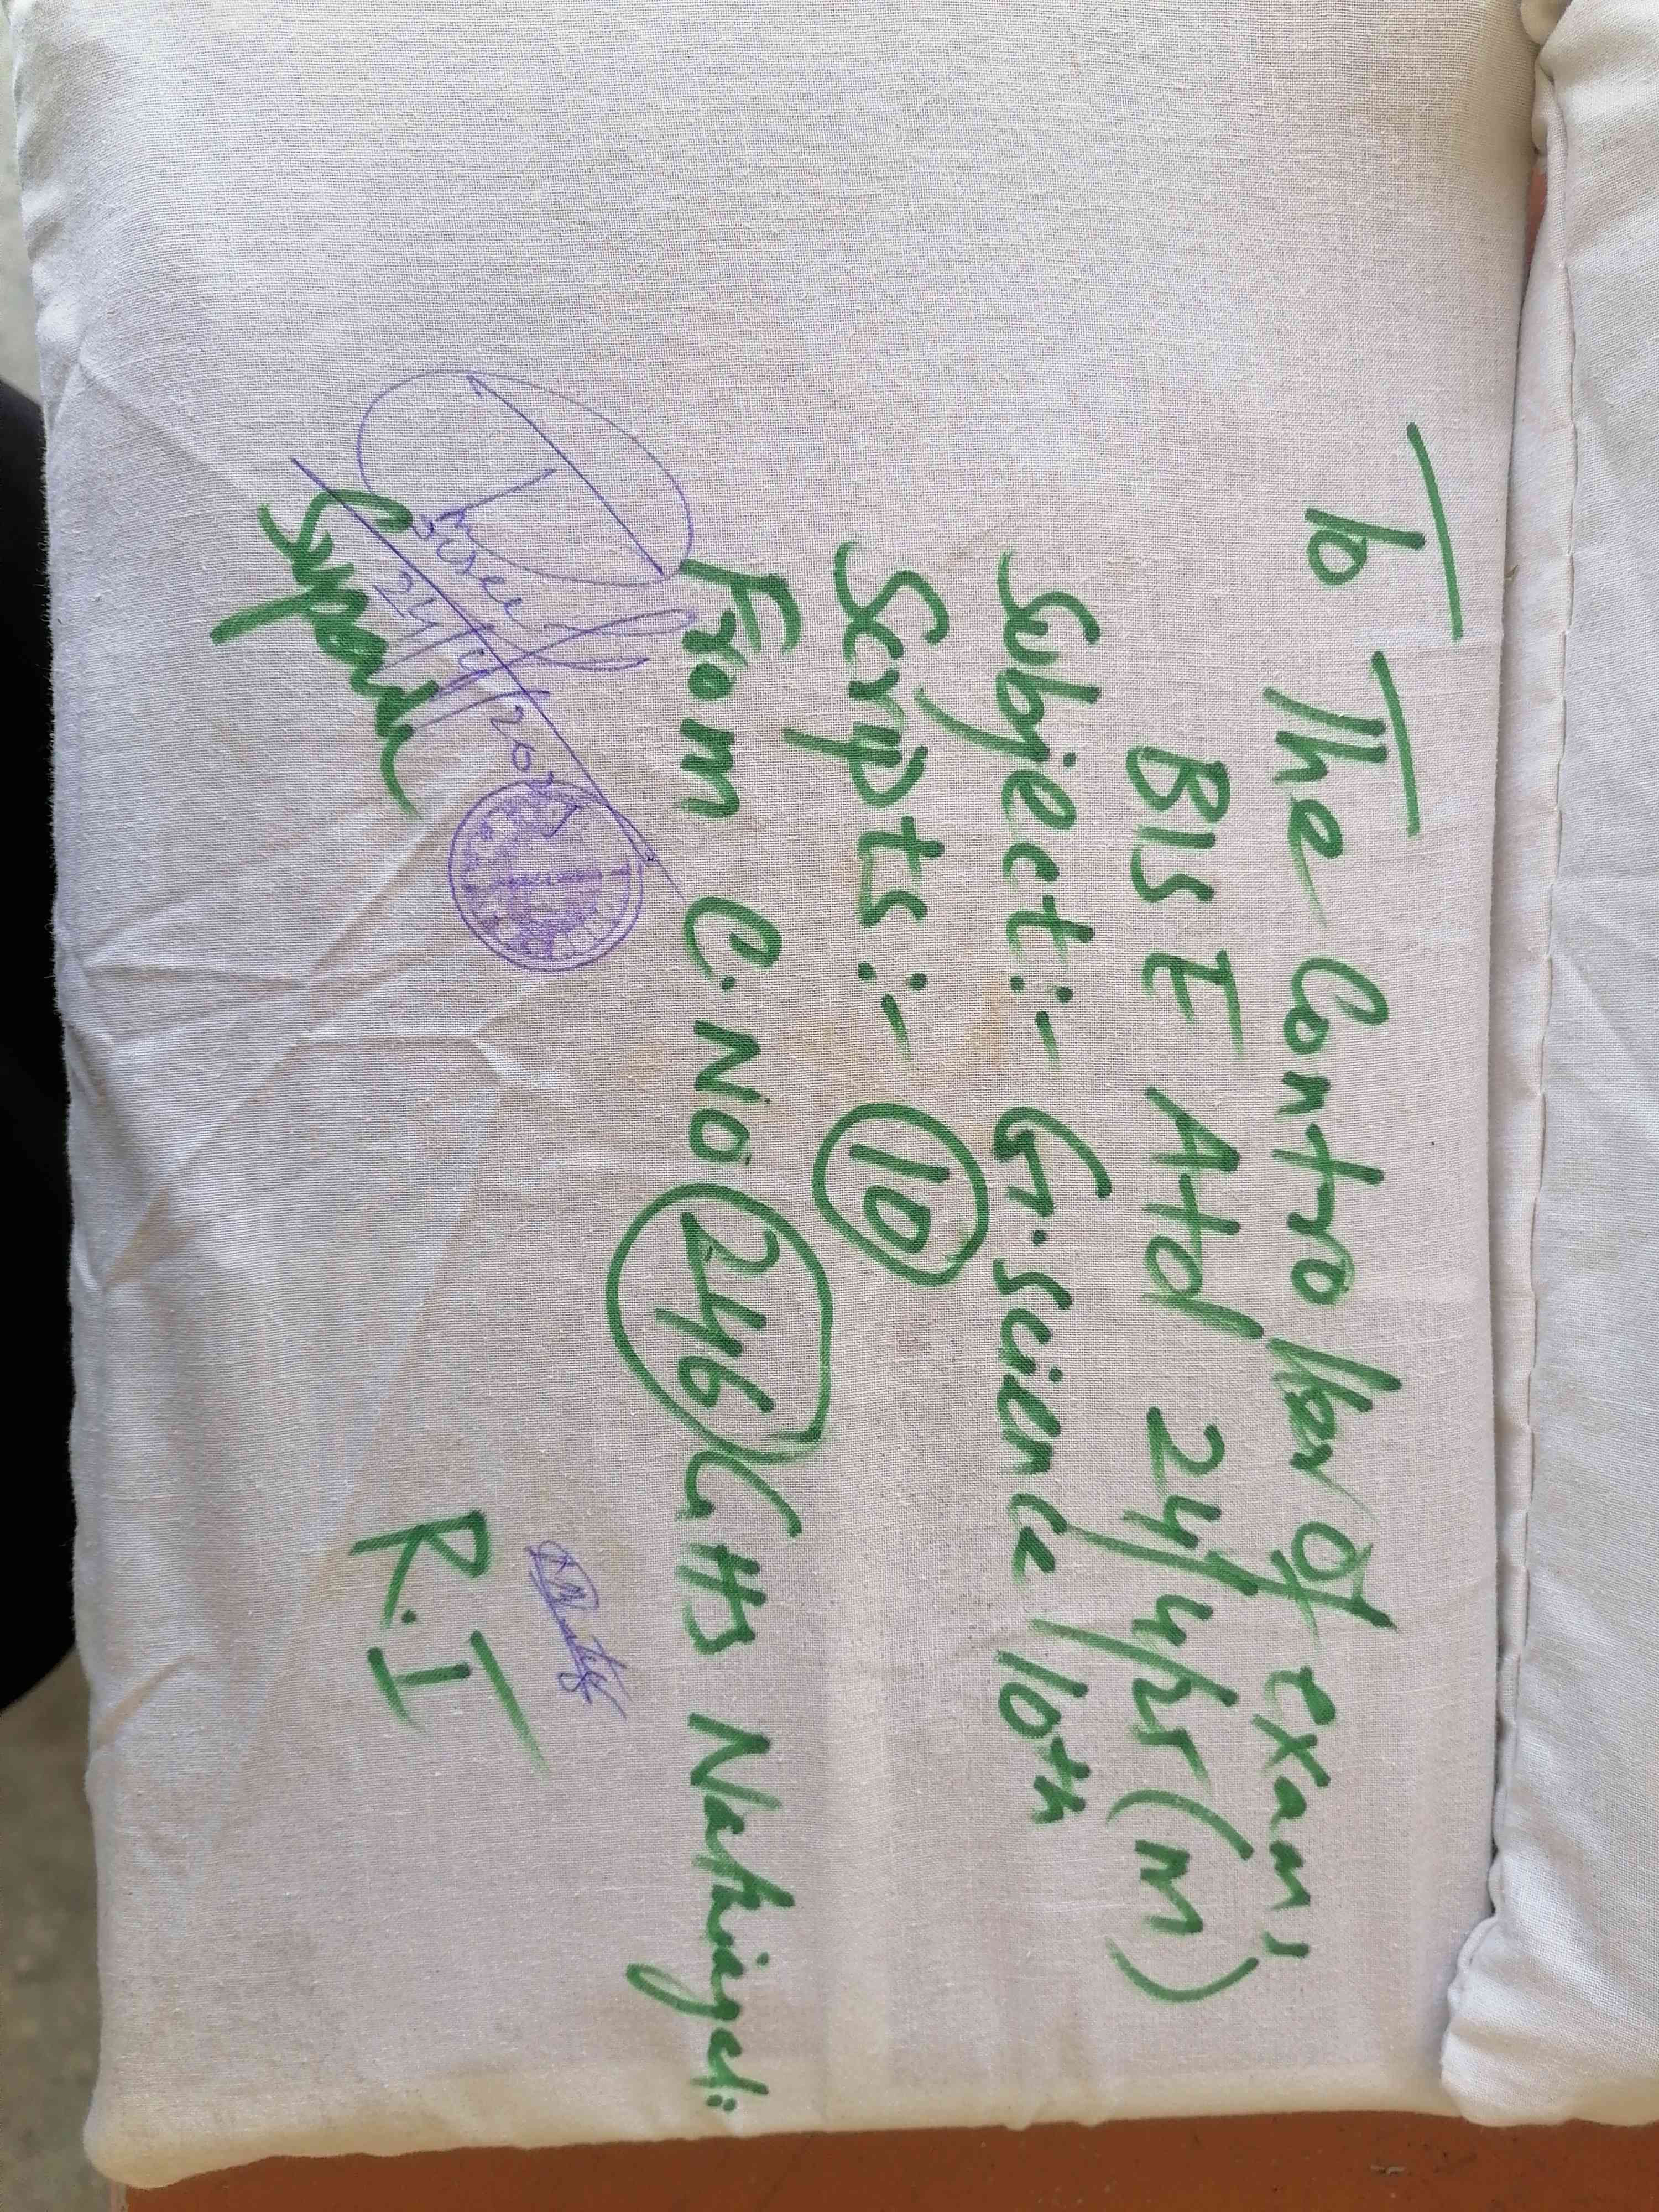 To The Controller Of exams
BISE Atd 24/4/25 (M)
Subject:- G.Science 10th
Scrpts:- 10
From C.No 246 GHS Nathiagali
24/4/202
Supdt
R.I